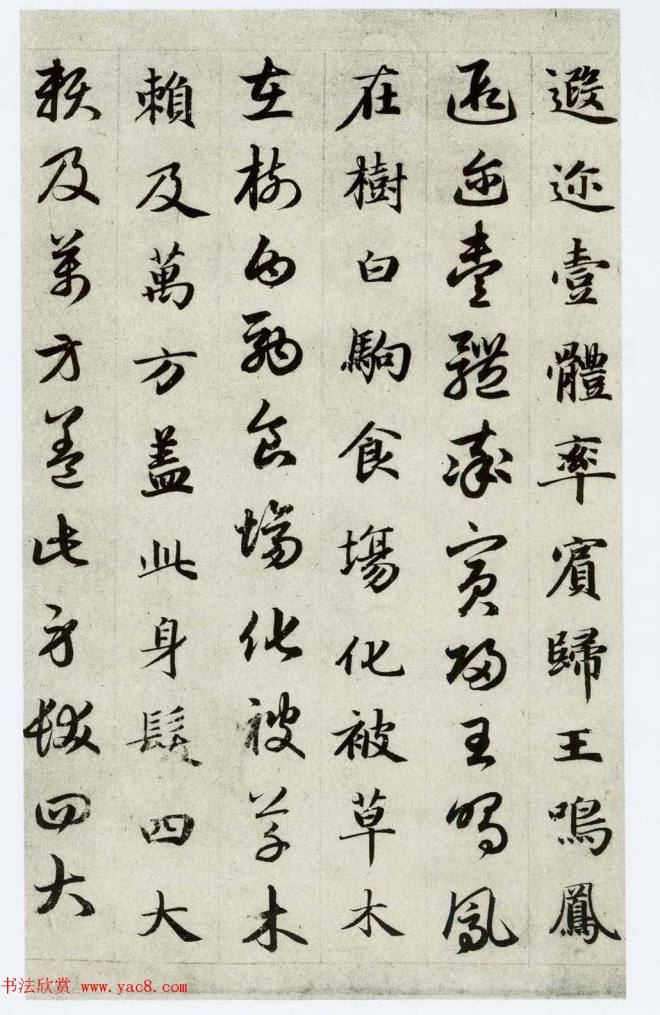 遐迩壹體率賓歸王鳴鳳
遐迩壹體率賓歸王鳴鳳
在樹白駒食場化被草木
在樹白駒食場化被草木
賴及萬方蓋此身髮四大
賴及萬方蓋此身髮四大
书法欣赏 www.yac8.com